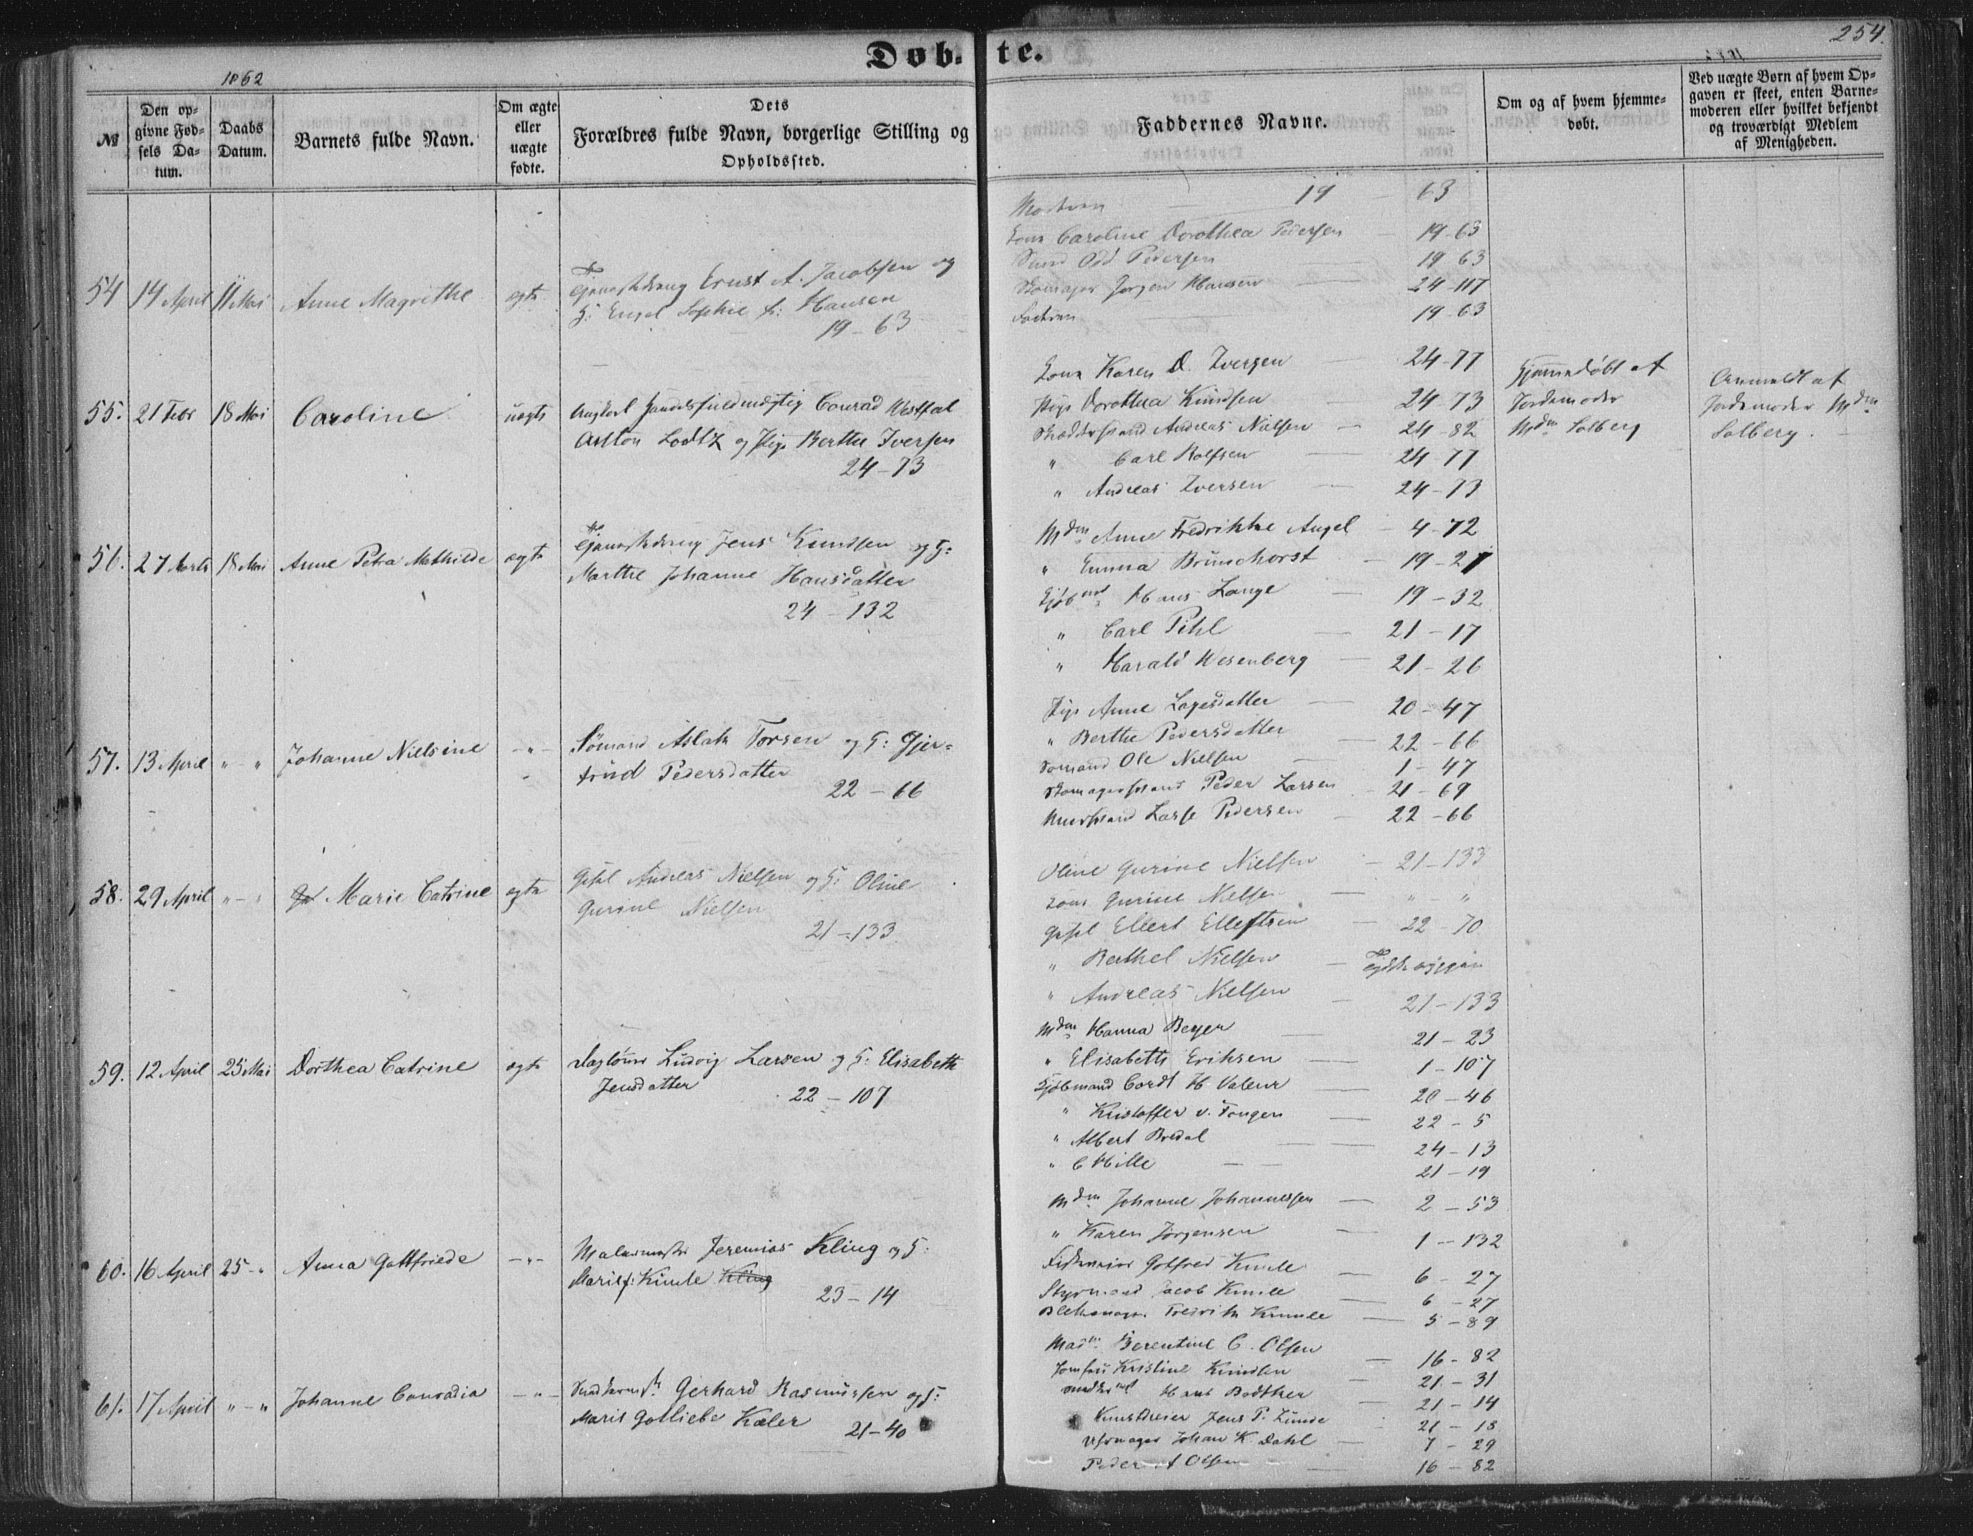 Døb- te.
254.
1862
№
Den op-
givne Fød-
sels Da-
tum.
Daabs
Datum.
Barnets fulde Navn.
Om ægte
eller
uægte
fødte.
Dets
Forældres fulde Navn, borgerlige Stilling og
Opholdssted.
Faddernes Navne.
Om og af hvem hjemme-
døbt.
Ved uægte Børn af hvem Op-
gaven er skeet, enten Barne-
moderen eller hvilket bekjendt
og troværdigt Medlem
af Menigheden.
54 14 April 11 Mai Anne Magrethe egte
Ernst A. Jacobsen og
H: Engel Sophie f: Hansen
19 – 63
Modren 19 – 63
Jomf Caroline Dorothea Pedersen – 19-63
Odd Pedersen 19-63
Skomager Jørgen Hansen 24-117
Fadren 19-63
55. 21 Febr 18 Mai Caroline uegte
Handelsfuldmægtig Conrad Westfal
Anton Lodtz og Pige Berthe Iversen
24 – 73
Jomf Karen D. Iversen 24-77
Pige Dorothea Knudsen 24-73
Andreas Nielsen – 24-82
" Carl Rolfsen 24-77
" Andreas Iversen 24-73
Hjemmedøbt af
Jordemoder
Mdm Solberg
Anmeldt af
Jordemoder Mdm
Solberg.
56. 27 Marts 18 Mai Anne Petra Mathilde egte
Jens Knudsen og H:
Marthe Johanne Hansdatter
24 – 132
Mdm Anne Fredrikke Angel – 4-72
" Emma Brunchorst – 19-27
Kjøbmd Hans Lange – 19-32
" Carl Pihl – 21-17
" Harald Wesenberg – 21-26
57. 13 April " – " Johanne Nielsine – " –
Sømand Aslak Torsen og H: Gjer-
trud Pedersdatter
22 – 66
Pige Anne Lagesdatter 20-47
" Berthe Pedersdatter 22-66
Sømand Ole Nielsen 1-47
Peder Larsen 21-69
Lasse Pedersen – 22-66
58. 29 April " – " Marie Catrine egte
Gesel Andreas Nielsen og H: Oline
Gurine Nielsen
21 – 133
Oline Gurine Nielsen – 21-133
Jomf Gurine Nielsen – " – "
Gesel Ellert Elleftsen – 22-70
" Berthel Nielsen –
" Andreas Nielsen – 21-133
59. 12 April 25 Mai Dorthea Catrine egte
Dagleier Ludvig Larsen og H: Elisabeth
Jensdatter 22 – 107
Mdm Hanna Beyer 21-23
" Elisabeth Eriksen – 1-107
Kjøbmand Cordt H Valeur – 20-46
" Kristoffer v. Tangen – 22-5
" Albert Bredal 24-13
" C Hille 21-19
60. 16 April 25 – " Anna Gottfriede – " –
Malermester Jeremias Kling og H:
Marie f: Kimle Kling
23 – 14
Mdm Johanne Johannessen – 2-53
" Karen Jørgensen – 1-132
Gotfred Kimle – 6-27
Styrmand Jacob Kimle – 6-27
Fredrik Kimle – 5-89
61. 17 April " – " Johanne Conradia – " –
Gerhard Rasmussen og H:
Marie Gotliebe Kæler
21-40
Madm Berentine C. Olsen 16-82
Jomfru Kristine Knudsen – 21-31
Hans Bødtker 21-14
Jens P. Lunde 21-18
Johan K. Dahl – 7-29
Peder A Olsen 16-82